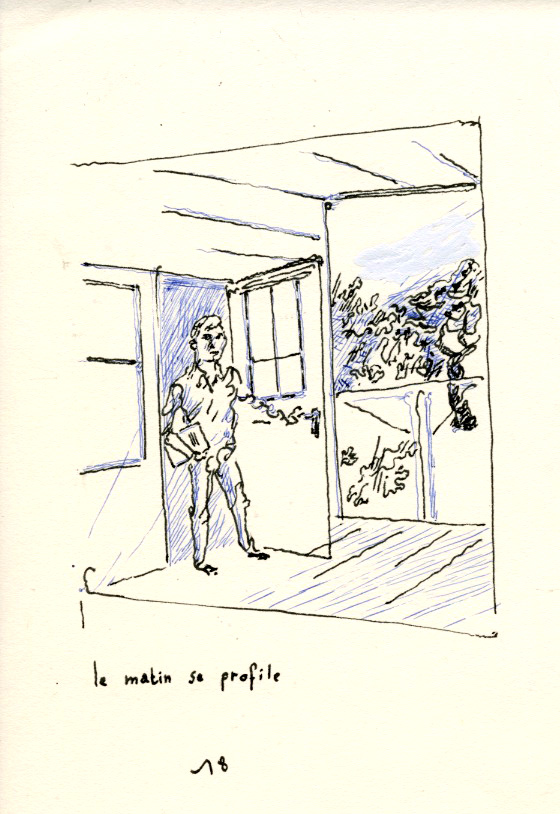 le matin se profile
18